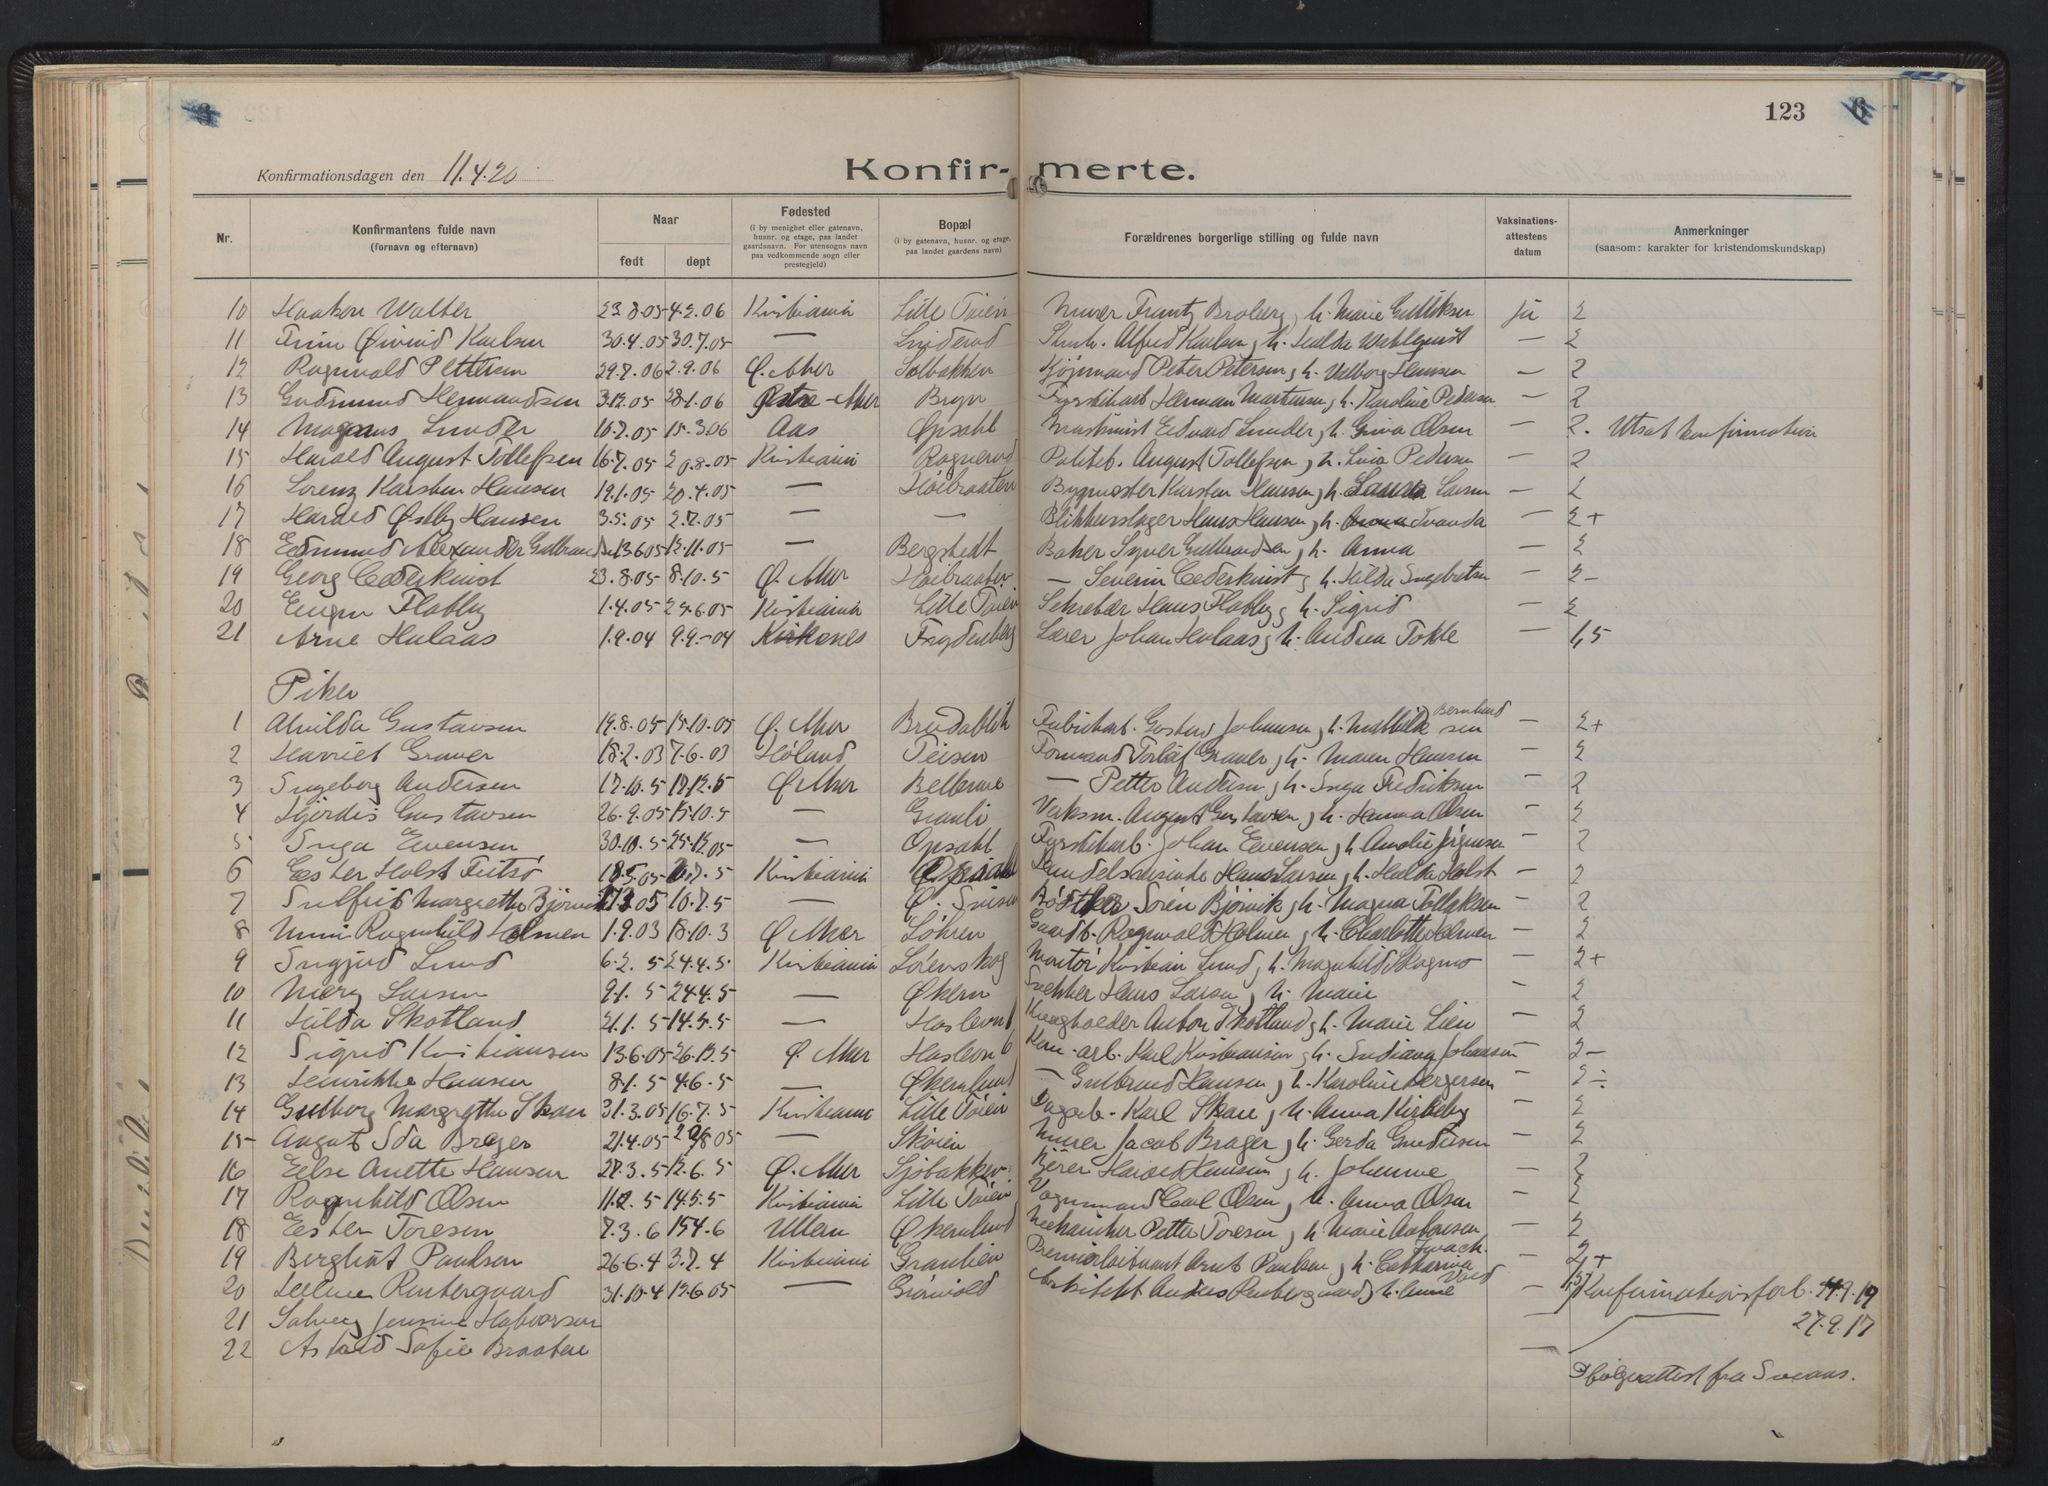 123
Konfirmationsdagen den 11.4.20
Konfir- merte.
Nr.
Konfirmantens fulde navn
(fornavn og efternavn)
Naar
født
døpt
Fødested
(i by menighet eller gatenavn, husnr. og etage, paa landet gaardsnavn. For utensogns navn paa vedkommende sogn eller prestegjeld)
Bopæl
(i by gatenavn, husnr. og etage, paa landet gaardens navn)
Forældrenes borgerlige stilling og fulde navn
Vaksinations-attestens datum
Anmerkninger
(saasom: karakter for kristendomskundskap)
10 Haakon Walter 23.8.05 4.2.06 Kristiania Lille Tøien Murer Frantz Broberg, h. Marie Gulliksen ja 2
11 Finn Øivind Karlsen 30.4.05 30.7.05 — Linderud Alfred Karlsen, h. Hulda Wahlquist — 2
12 Ragnvald Pettersen 29.7.06 2.9.06 Ø. Aker Solbakken Peter Petersen, h. Valborg Hansen — 2
13 Gudmund Hermandsen 3.12.05 28.1.06 Østre-Aker Bryn Fyrstikarb. Herman Martinsen, h. Karoline Pedersen — 2
14 Magnus Lunder 15.3.06 Aas Opsahl Maskinist Edvard Lunder, h. Olsen — 2. Utsat konfirmation
15 Harald August Tollefsen 16.7.05 20.8.05 Kristiania Rognerud Politib. August Tollefsen, h. Lina Pedersen — 2
16 Lorenz Karsten Hansen 19.1.05 20.4.05 — Høibraaten Bygmester Karsten Hansen, h. Laura Larsen — 2
17 Harald Østby Hansen 3.5.05 2.7.05 — — Blikkenslager Hans Hansen, h. Ivanda — 2+
18 Edmund Alexander Gulbrandsen 13.6.05 12.11.05 — Bergstedt Baker Syver Gulbrandsen, h. Anna — 2
19 Georg Cederkvist 23.8.05 8.10.5 Ø. Aker Høibraaten — Severin Cederkvist, h. Hilda Ingebretsen — 2-
20 Eugen Flatby 1.4.05 25.6.05 Kristiania Lille Tøien Hans Flatby, h. Sigrid — 2
21 Arne Hulaas 1.9.04 9.9.-04 Kirkenes Frydenberg Lærer Johan Hulaas, h. Andrea Tokle — 1,5
Piker
1 Alvilda Gustavsen 19.8.05 15.10.05 Ø. Aker Breidablik Fabrikarb. Gustav Johansen, h. Mathilde Berntsen — 2+
2 Harriet Graner 18.2.03 7.6.03 Høland Teisen Formand Torlaf Graner, h. Maren Hansen — 2
3 Ingeborg Andersen 12.10.5 12.12.5 Ø. Aker Bellevue — Petter Andersen, h. Inga Fredriksen — 2
4 Hjørdis Gustavsen 26.9.05 15.10.5 — Granli Verksm. August Gustavsen, h. Hanna Olsen — 2
5 Inga Evensen 30.10.5 25.12.05 — Opsahl Fyrstikarb. Johan Evensen, h. Amalie Jørgensen — 2
6 Ester Holst Fritsø 18.5.05 Kristiania Opsahl Handelsreisende Hans Larsen, h. Hulda Holst — 2
7 Sulfrid Margrethe Bjørnvik 16.7.5 — Bødker Søren Bjørnvik, h. Magna Tollaksen — 2
8 Unni Ragnhild Holmen 1.9.03 18.10.3 Ø. Aker Løhren Gaardb. Ragnvald Holmen, h. Charlotte Holmen — 2
9 Ingjerd Lund 6.2.5 24.4.5 Kristiania Lørenskog Montør Kristian Lund, h. Magnhild Skogmo — 2+
10 Mary Larsen 9.1.5 24.4.5 — Økern Snekker Hans Larsen, h. Marie — 2
11 Hilda Skotland 21.1.5 14.5.5 — Haslevold Anton Skotland, h. Marie Lien — 2
12 Sigrid Kristiansen 13.6.05 26.12.5 Ø. Aker Haslevold arb. Karl Kristiansen, h. Indiana Johansen — 2-
13 Henrikke Hansen 8.1.5 4.6.5 — Økernlund — Gulbrand Hansen, h. Karoline Bergersen — 2÷
14 Gudborg Margrethe Skau 31.3.05 16.7.5 Kristiania Lille Tøien Dagarb. Karl Skau, h. Anna Kirkeby — 2
15 August Ida Brager 21.4.05 — Skøien Murer Jacob Brager, h. Gerda Gundersen — 2
16 Else Anette Hansen 27.3.5 12.6.5 Ø. Aker Sjøbakken Kjører Harald Hansen, h. Johanne — 2
17 Ragnhild Olsen 11.2.5 14.5.5 Kristiania Lille Tøien Vognmand Carl Olsen, h. Anna Olsen — 2
18 Ester Toresen 7.3.6 15.4.6 Ullern Økernlund Mekaniker Petter Toresen, h. Marie Antonsen — 2
19 Bergliot Paulsen 26.6.4 3.7.4 Kristiania Granlien Premierløitnant Arnt Paulsen, h. Catharina — 2+
20 Rentergaard 31.10.4 12.6.05 — Grønvold Arkitekt Anders h. Anne Vold — 1,5 Konfirmationsforb. 9.19
21 Solveig Jensine Halvorsen — — 27.9.17
22 Astrid Sofie Braaten — Følgeattest fra